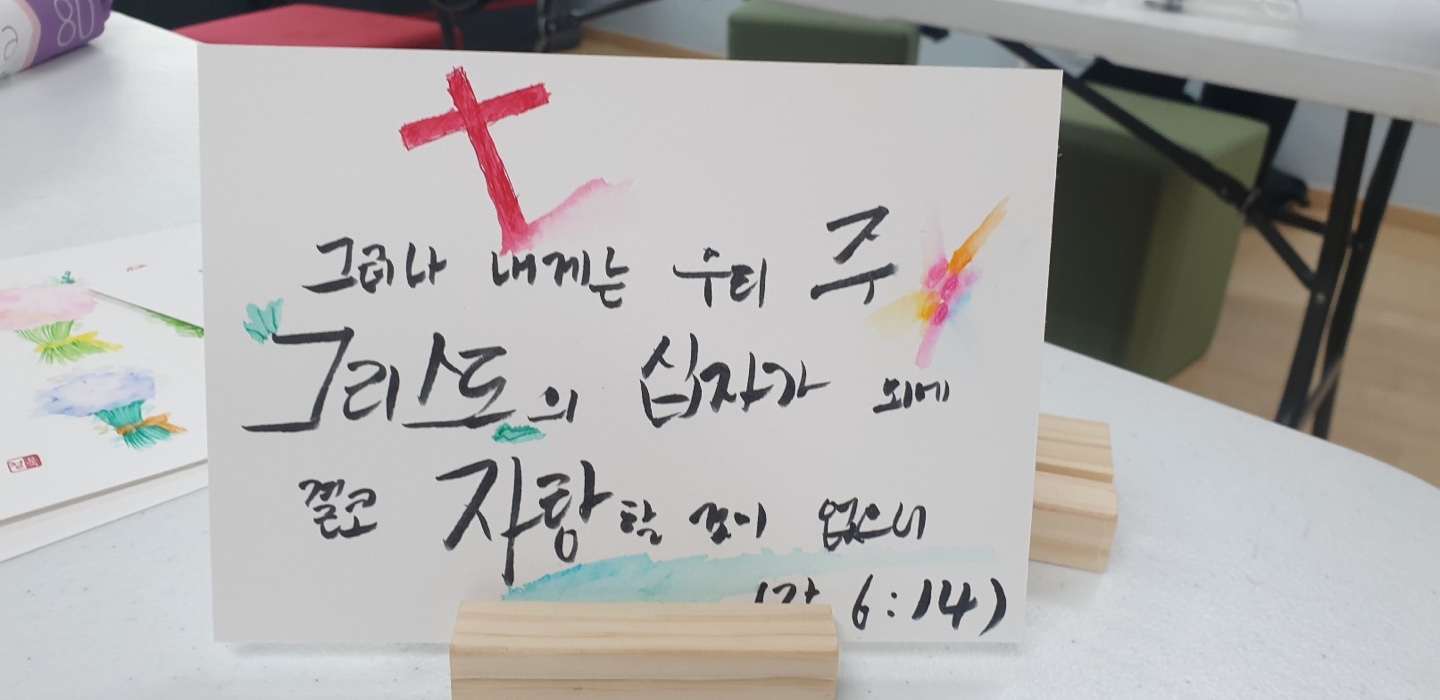 그러나 내게는 우리 주
그리스도의 십자가 외에
결코 자랑할 것이 없으니
(갈 6:14)
80